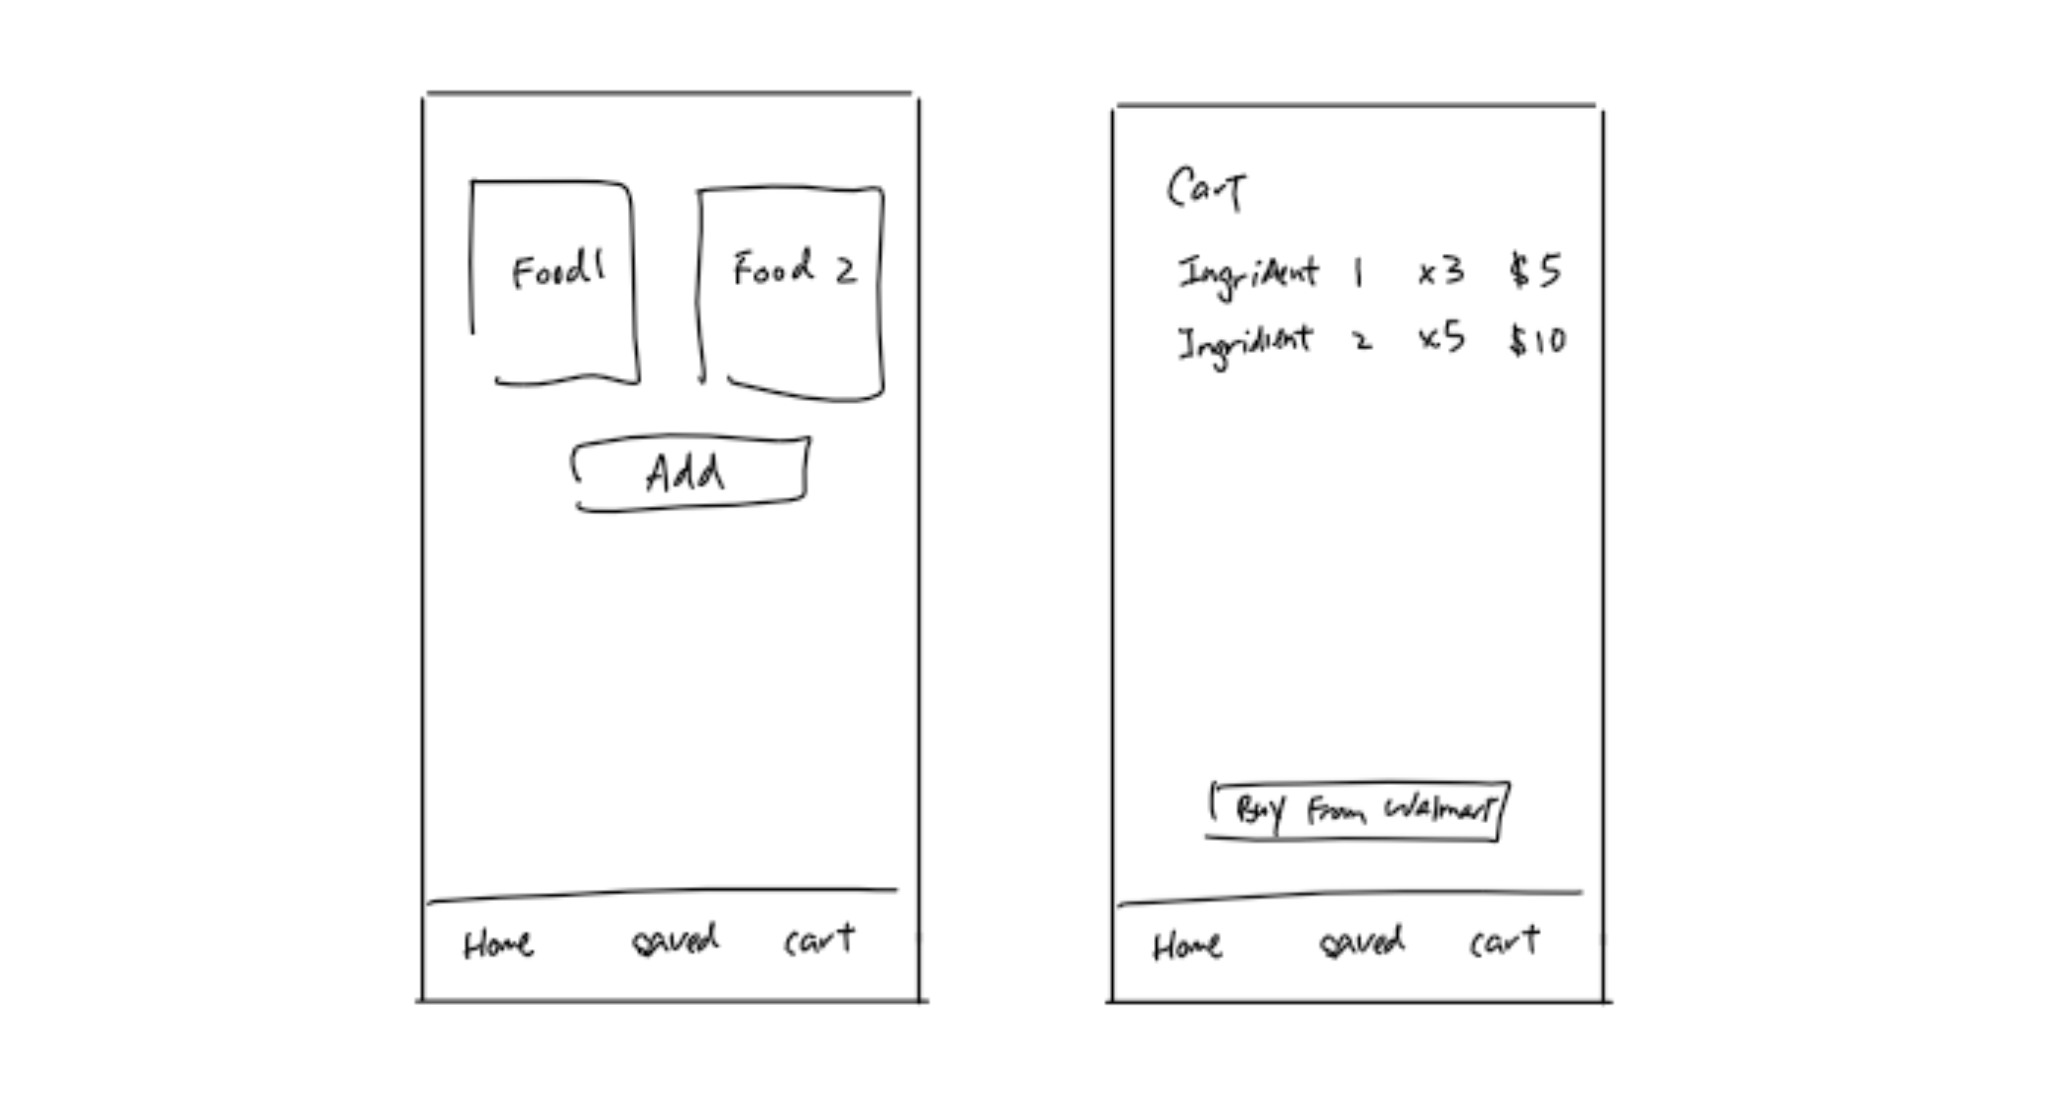 Food1
Food 2
Add
Home saved cart
Cart
Ingridient 1 x3 $5
Ingridient 2 x5 $10
Buy From Walmart
Home saved cart